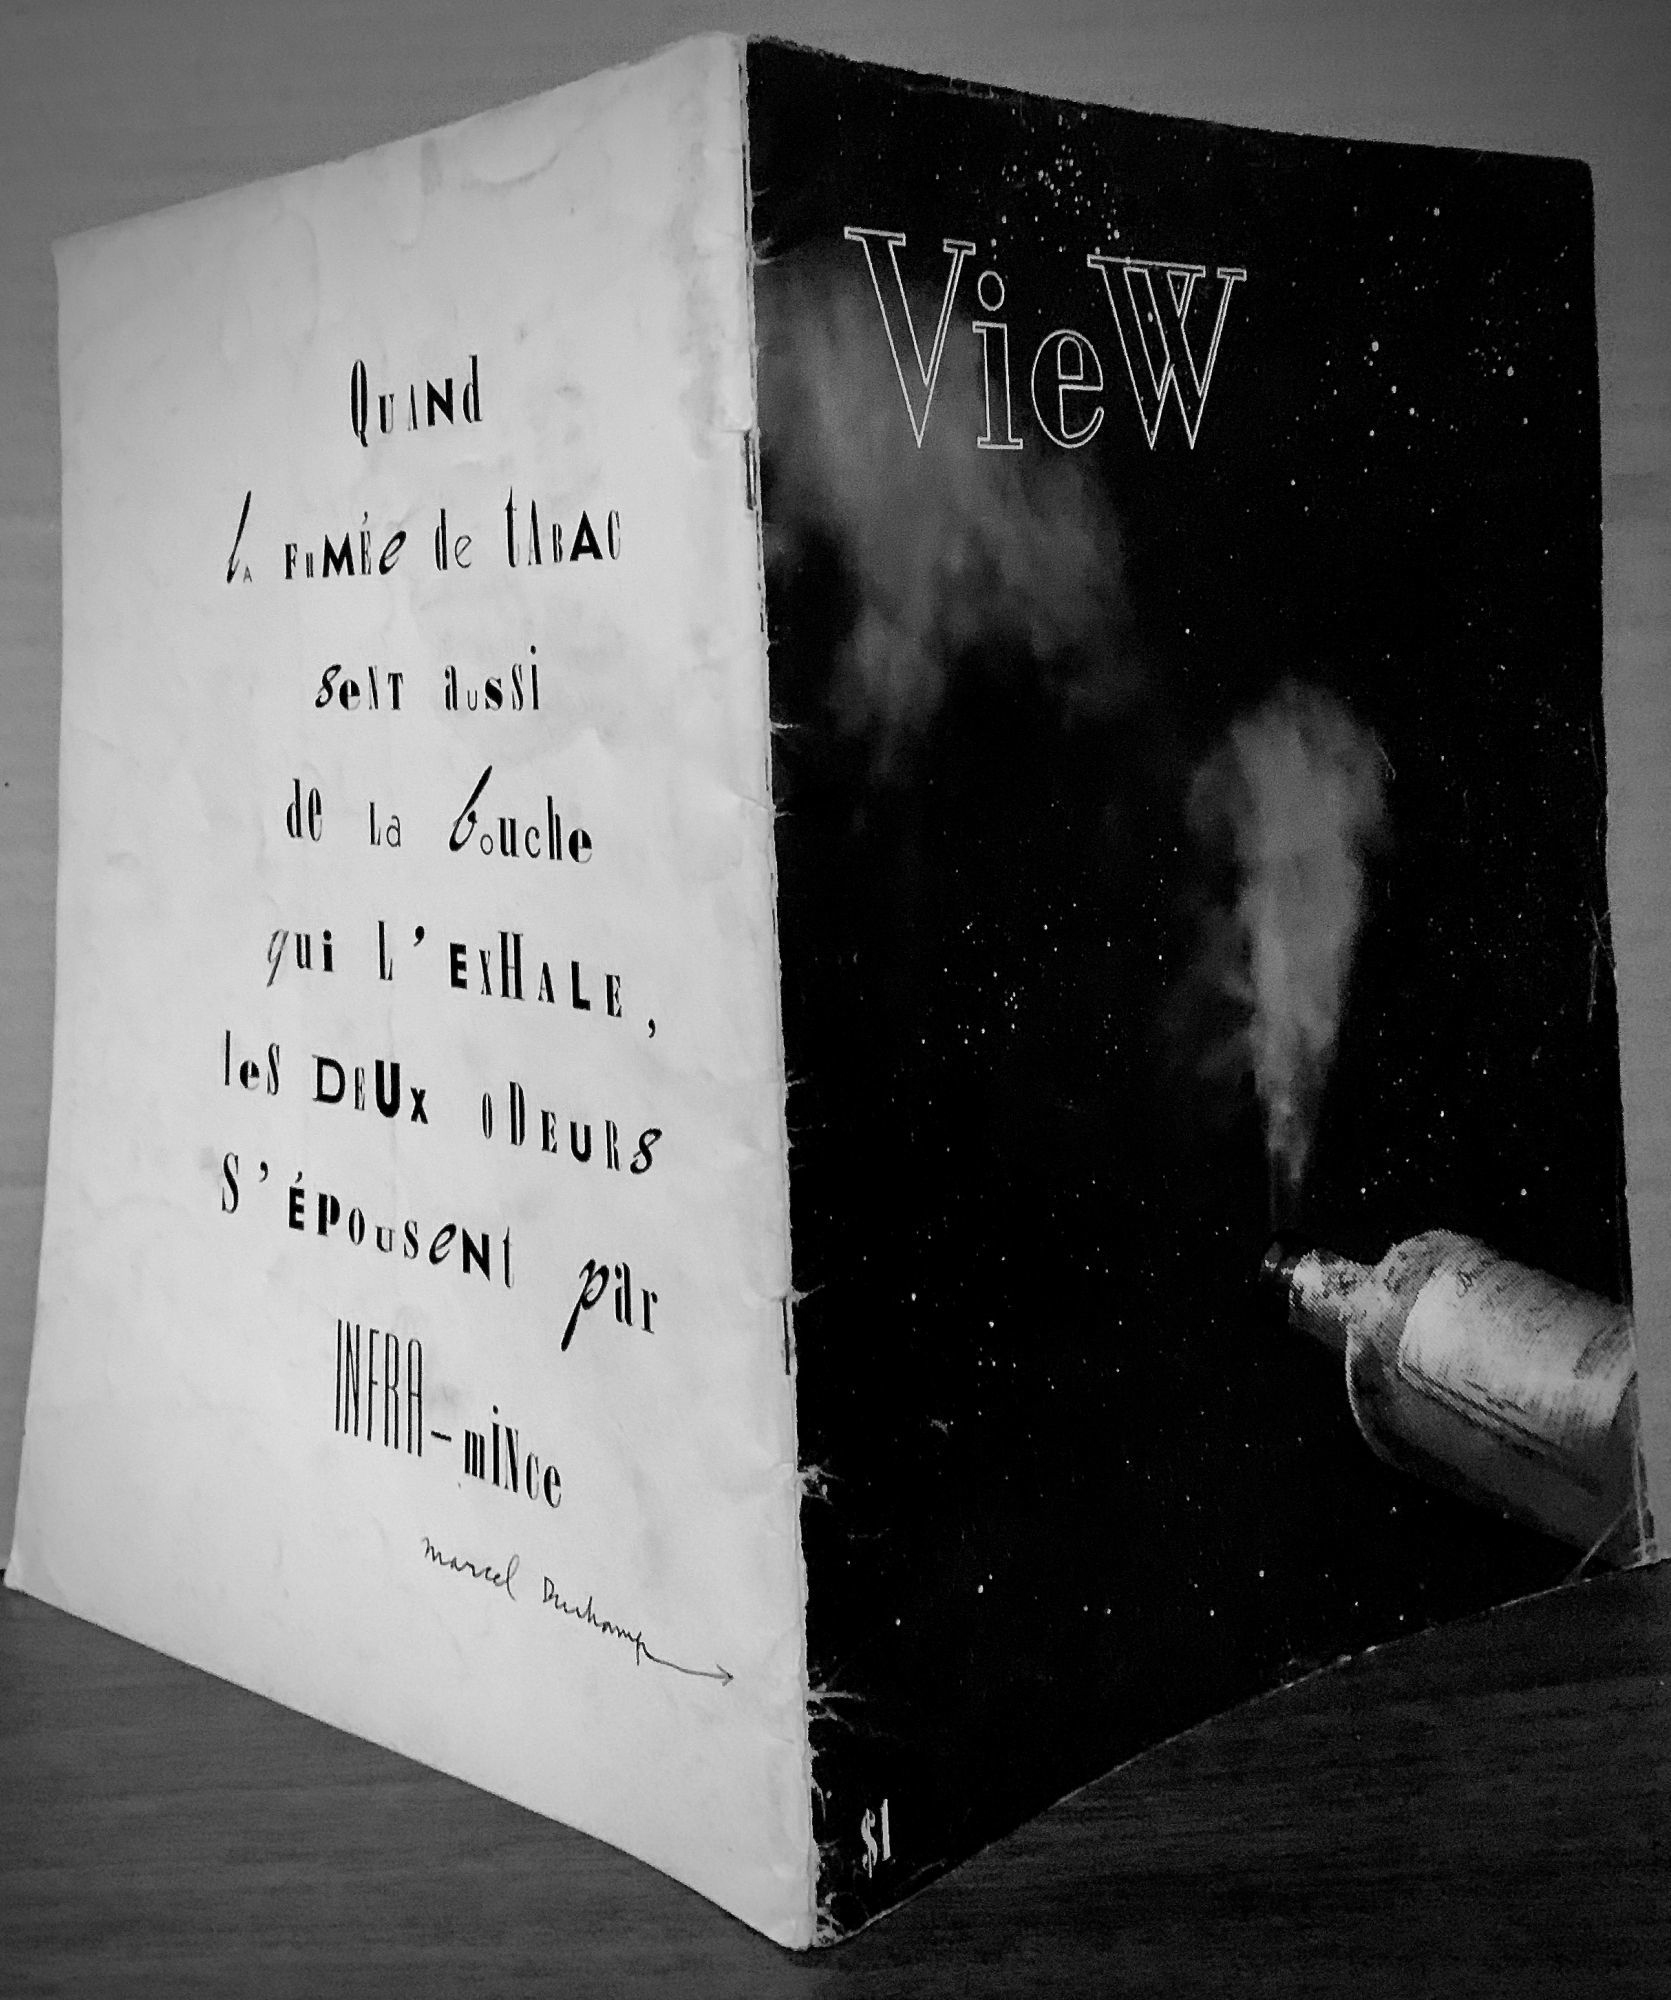 QUAND
LA FUMÉE de tABAC
seNT aussi
de La bouche
qui L'EXHALE,
les DEUX ODEURS
S'ÉPOUSENT par
INFRA-mINce
marcel Duchamp
VieW
$1